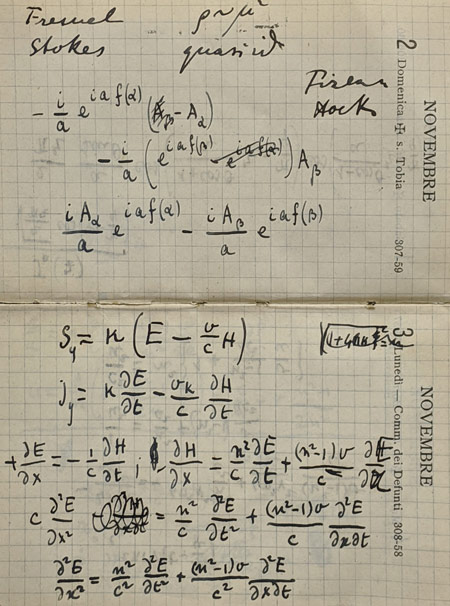 Fresnel ρ ~ μ²
Stokes quasi id
Fizeau
Hock
- i/a e^{iaf(α)} (A_β - A_α)
- i/a (e^{iaf(β)} - e^{iaf(α)}) A_β
iA_α/a e^{iaf(α)} - iA_β/a e^{iaf(β)}
2 NOVEMBRE
Domenica ✠ s. Tobia 307-59
S_y = κ (E - v/c H)
j_y = κ ∂E/∂t - vκ/c ∂H/∂t
+ ∂E/∂x = - 1/c ∂H/∂t, - ∂H/∂x = n²/c ∂E/∂t + (n²-1)v/c ∂E/∂x
c ∂²E/∂x² = n²/c ∂²E/∂t² + (n²-1)v/c ∂²E/∂x∂t
∂²E/∂x² = n²/c² ∂²E/∂t² + (n²-1)v/c² ∂²E/∂x∂t
3 NOVEMBRE
Lunedì — Comm. dei Defunti 308-58